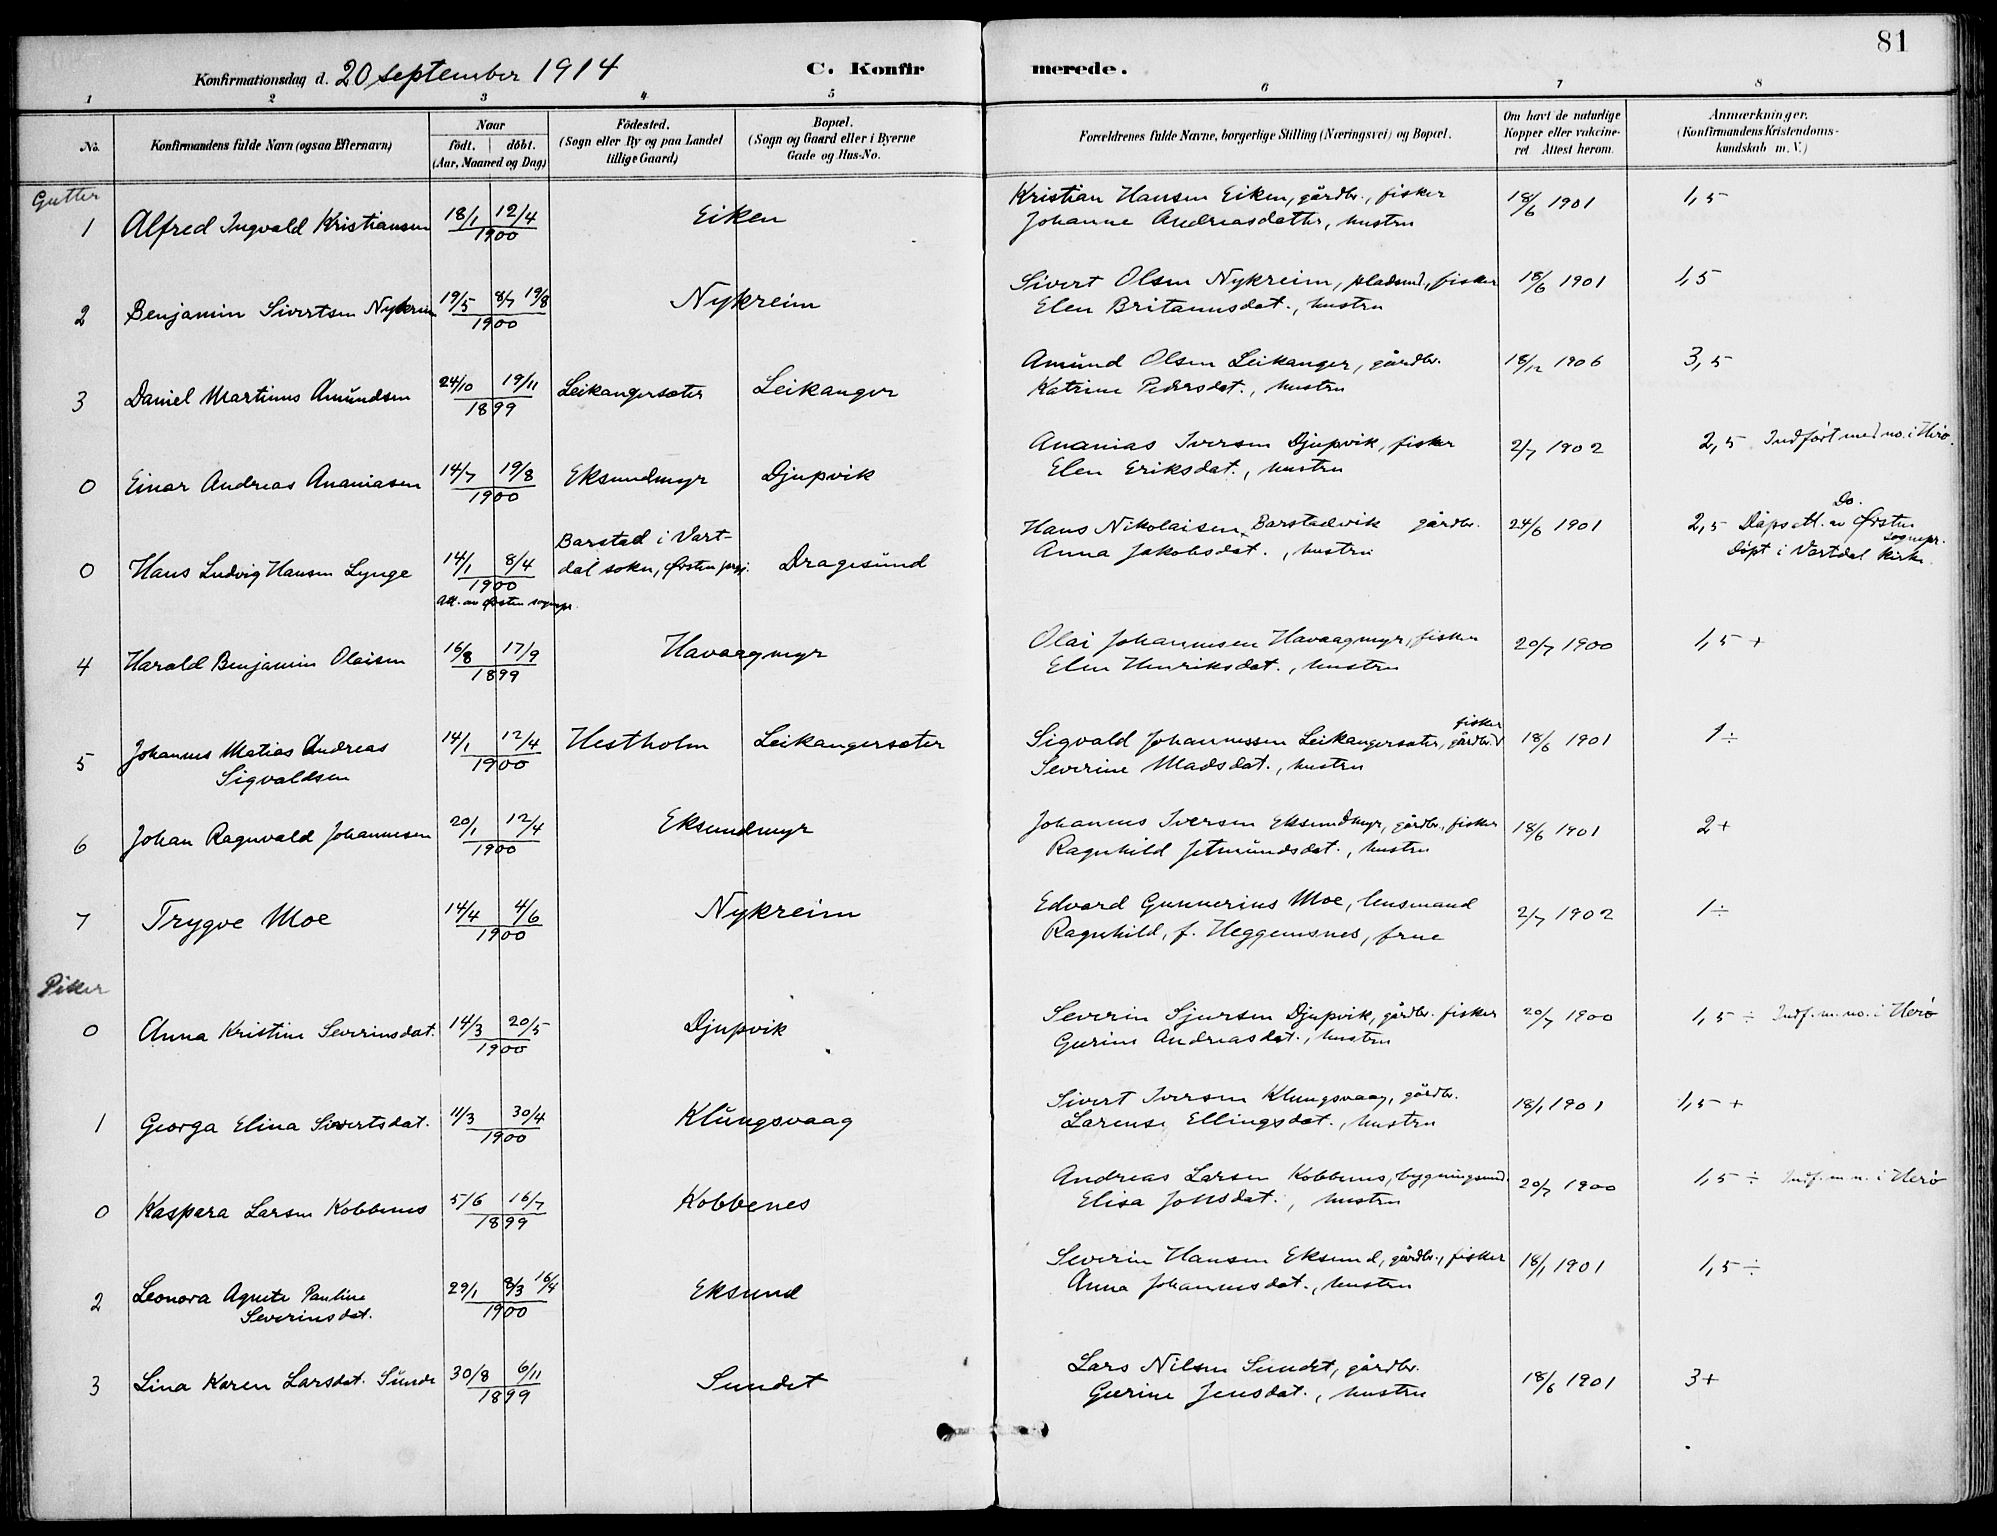 81
Konfirmationsdag d. 20 september 1914 C. Konfirmerede.
1 2 3 4 5 6 7 8
No. Konfirmandens fulde Navn (ogsaa Efternavn) Naar födt. döbt. (Aar, Maaned og Dag) Födested. (Sogn eller By og paa Landet tillige Gaard) Bopæl. (Sogn og Gaard eller i Byerne Gade og Hus-No. Forældrenes fulde Navne, borgerlige Stilling (Næringsvei) og Bopæl. Om havt de naturlige Kopper eller vakcineret. Attest herom. Anmærkninger. (Konfirmandens Kristendomskundskab m. V.)
Gutter
1 Alfred Ingvald Kristiansen 18/1 12/4 1900 Eiken Kristian Hansen Eiken, gårdbr., fisker 18/6 1901 1,5
Johanne Andreasdatter, hustru
2 Benjamin Sivertsen Nykreim 19/5 8/7 19/8 1900 Nykreim Sivert Olsen Nykreim, pladsmd., fisker 18/6 1901 1,5
Elen Britanusdat., hustru
3 Daniel Martinus Amundsen 24/10 19/11 1899 Leikangersæter Leikanger Amund Olsen Leikanger, gårdbr. 18/12 1906 3,5
Katrine Pedersdat., hustru
0 Einar Andreas Ananiasen 14/7 19/8 1900 Eksundmyr Djupvik Ananias Iversen Djupvik, fisker 2/7 1902 2,5 Indført med no. i Herø.
Elen Eriksdat., hustru
0 Hans Ludvig Hansen Lynge 14/1 8/4 1900 Barstad i Vartdal sokn, Ørsten prgj. Dragesund Hans Nikolaisen Barstadvik gårdbr. 24/6 1901 2,5 Do. Dåpsatt. av Ørsten sognepr. Döpt i Vartdal kirke.
Att. av Ørsten sognepr.
Anna Jakobsdat., hustru
4 Harald Benjamin Olaisen 16/8 17/9 1899 Havaagmyr Olai Johannesen Havaagmyr, fisker 20/7 1900 1,5 +
Elen Henriksdat., hustru
5 Johannes Matias Andreas Sigvaldsen 14/1 12/4 1900 Hestholm Leikangersæter Sigvald Johannessen Leikangersæter, gårdbr. fisker 18/6 1901 1 ÷
Severine Madsdat., hustru
6 Johan Ragnvald Johannesen 20/1 12/4 1900 Eksundmyr Johannes Iversen Eksundmyr, gårdbr., fisker 18/6 1901 2+
Ragnhild Jetmundsdat., hustru
7 Trygve Moe 14/4 4/6 1900 Nykreim Edvard Gunnerius Moe, lensmand 2/7 1902 1 ÷
Ragnhild, f. Heggemsnes, frue
Piker
0 Anna Kristine Severinsdat. 14/3 20/5 1900 Djupvik Severin Sjursen Djupvik, gårdbr. fisker 20/7 1900 1,5 ÷ Indf. m. no. i Herø
Gurine Andreasdat., hustru
1 Georga Elina Sivertsdat. 11/3 30/4 1900 Klungsvaag Sivert Iversen Klungsvaag, gårdbr. 18/1 1901 1,5 +
Larense Ellingsdat., hustru
0 Kaspara Larsen Kobbenes 5/6 16/7 1899 Kobbenes Andreas Larsen Kobbenes, bygningsmd. 20/7 1900 1,5 ÷ Indf. m. n. i Herø
Elisa Jonsdat., hustru
2 Leonora Agnete Pauline Severinsdat. 29/1 8/3 16/4 1900 Eksund Severin Hansen Eksund, gårdbr., fisker 18/1 1901 1,5 ÷
Anna Johannesdat., hustru
3 Lina Karen Larsdat. Sunde 30/8 6/11 1899 Sundet Lars Nilsen Sundet, gårdbr. 18/6 1901 3+
Gurine Jensdat., hustru